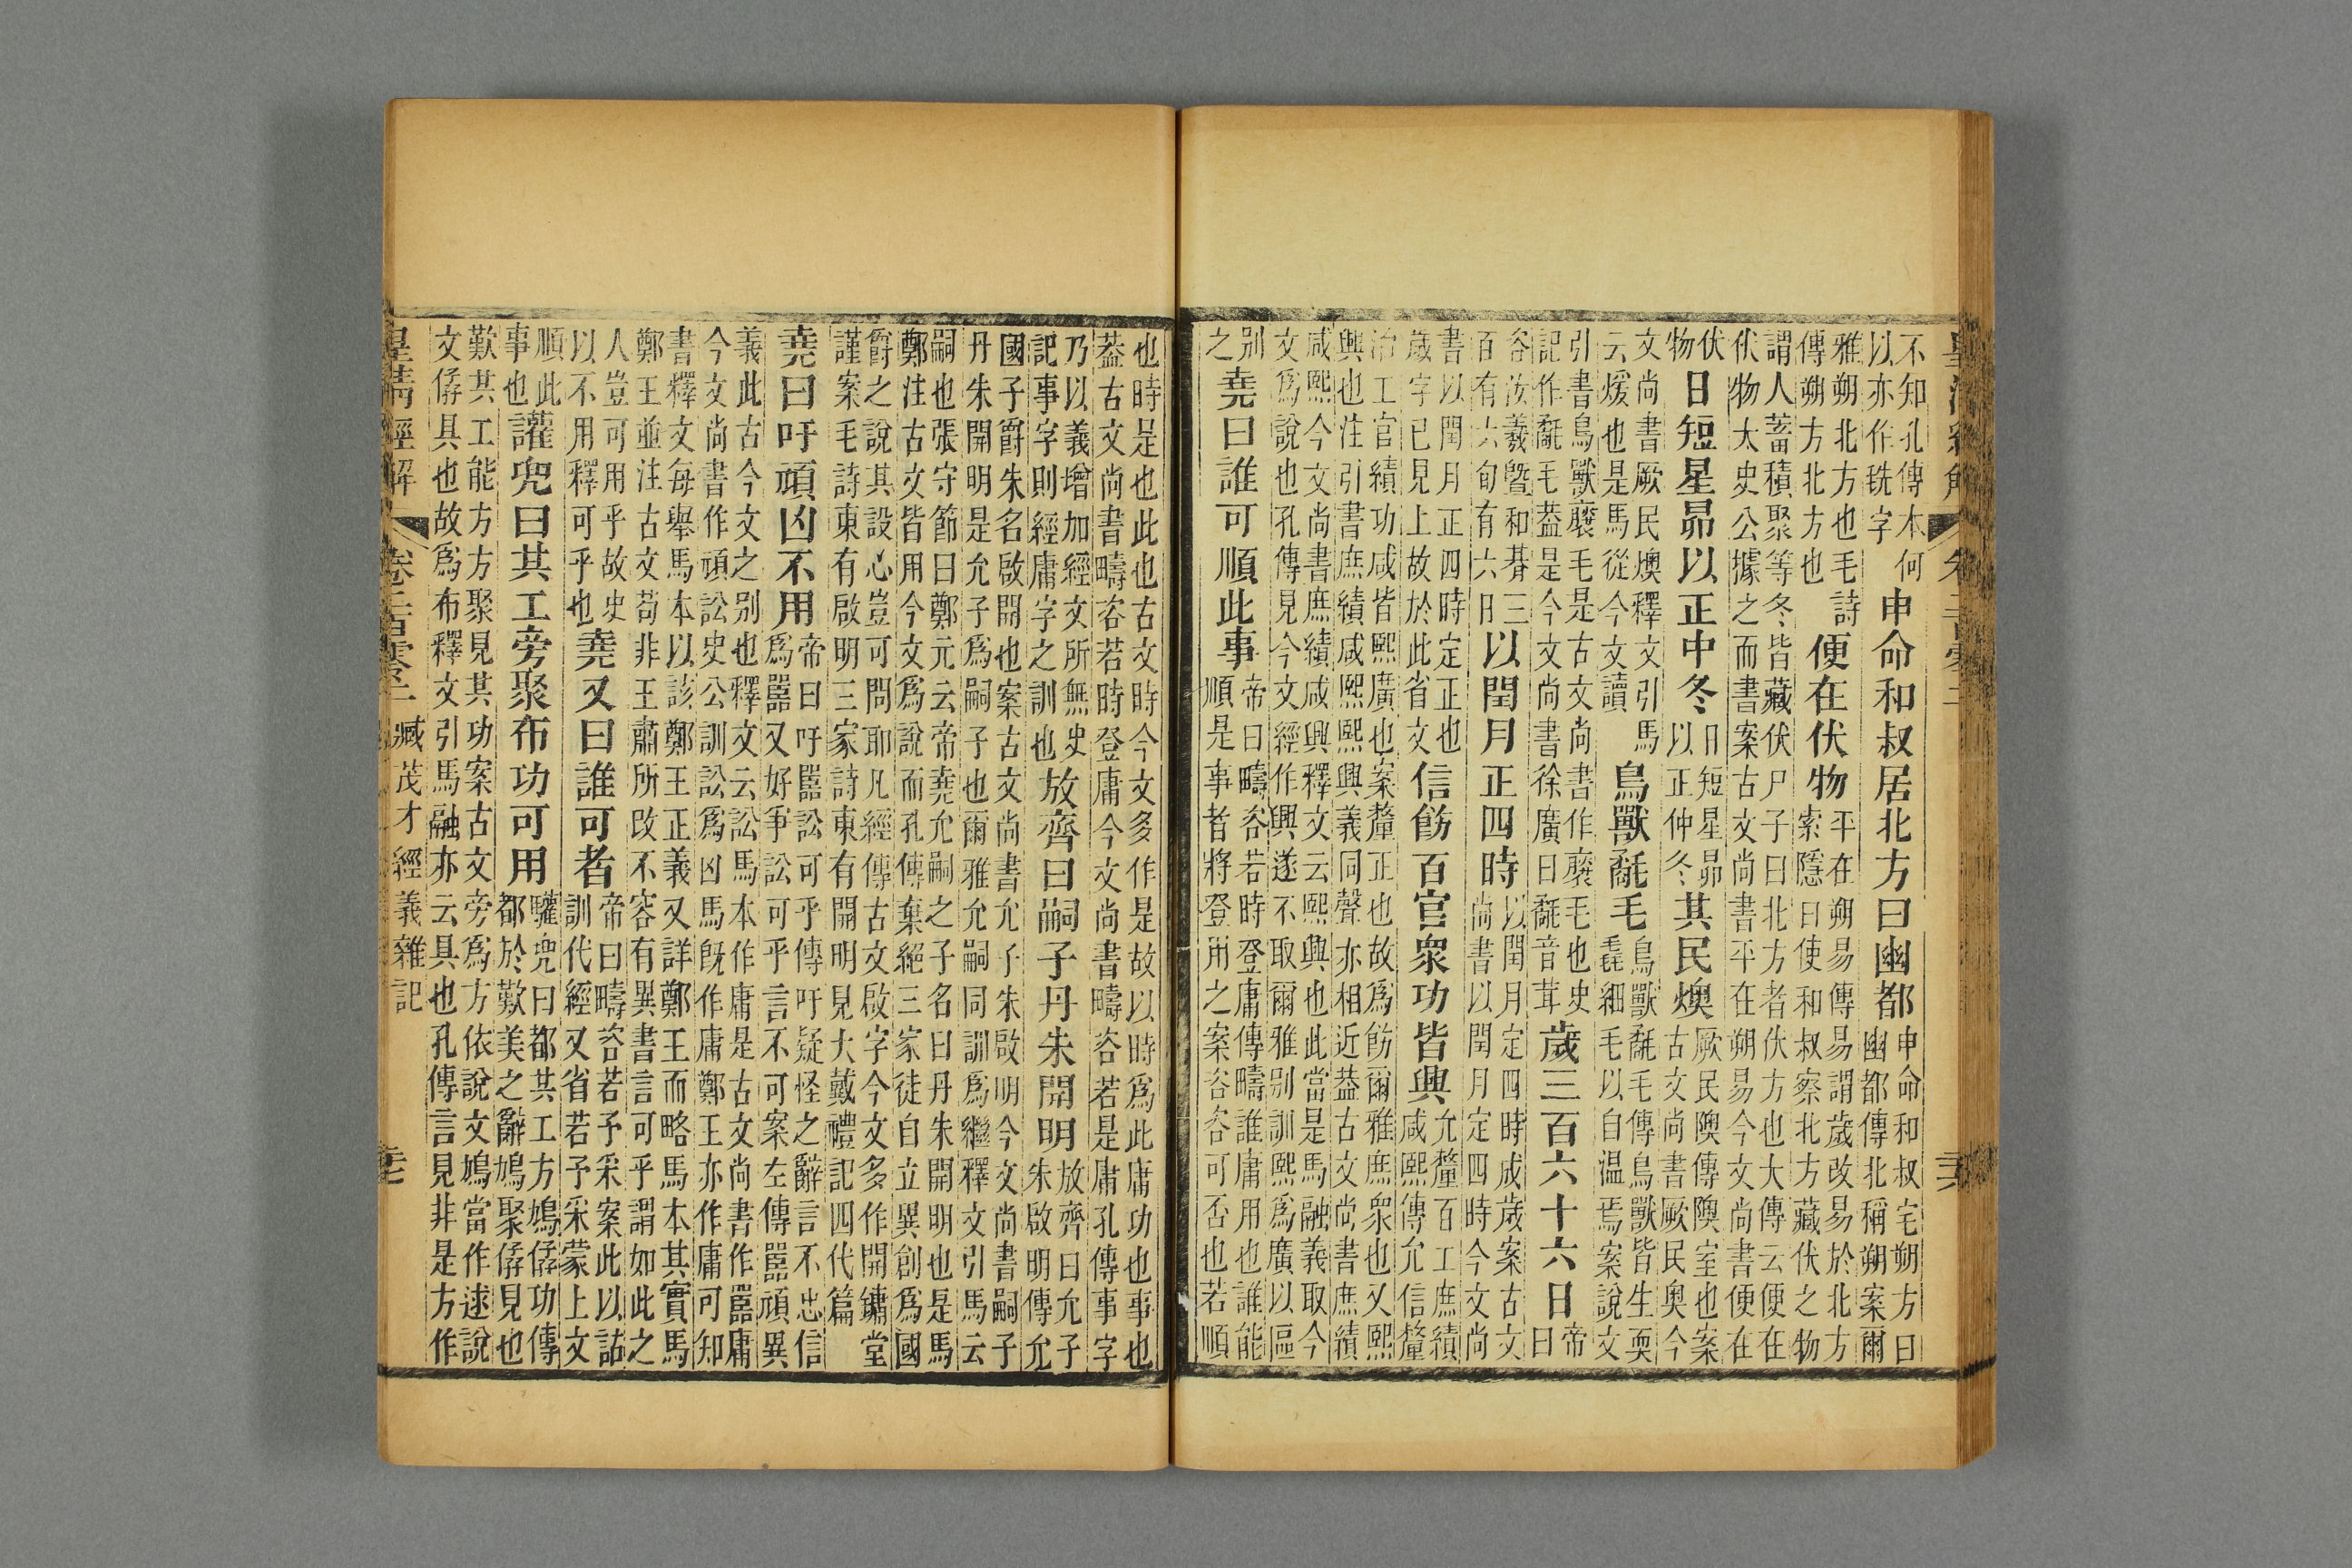 皇清經解 卷二百零二 二六
不知孔傳本何
以亦作铣字
申命和叔居北方曰幽都
申命和叔宅朔方曰
幽都傳北稱朔案爾
雅朔北方也毛詩
傳朔方北方也
便在伏物
平在朔易傳易謂歲改易於北方
索隱曰使和叔察北方藏伏之物
謂人蓄積聚等冬皆藏伏尸子曰北方者伏方也大傳云便在
伏物太史公據之而書案古文尚書平在朔易今文尚書便在
伏
物
日短星昴以正中冬
日短星昴
以正仲冬
其民燠
厥民隩傳隩室也案
古文尚書厥民奧今
文尚書厥民燠釋文引馬
云煖也是馬從今文讀
鳥獸氄毛
鳥獸氄毛傳鳥獸皆生耎
毳細毛以自温焉案說文
引書鳥獸襃毛是古文尚書作襃毛也史
記作氄毛蓋是今文尚書徐廣曰氄音茸
歲三百六十六日
帝
曰
咨汝羲暨和朞三
百有六旬有六日
以閏月正四時
以閏月定四時成歲案古文
尚書以閏月定四時今文尚
書以閏月正四時定正也
歲字已見上故於此省文
信飭百官眾功皆興
允釐百工庶績
咸熙傳允信釐
治工官績功咸皆熙廣也案釐正也故爲飭爾雅庶眾也又熙
興也注引書庶績咸熙熙興義同聲亦相近蓋古文尚書庶績
咸熙今文尚書庶績咸興釋文云熙興也此當是馬融義取今
文爲說也孔傳見今文經作興遂不取爾雅別訓熙爲廣以區
別
之
堯曰誰可順此事
帝曰疇咨若時登庸傳疇誰庸用也誰能
順是事者將登用之案咨咨可否也若順
也時是也此也古文時今文多作是故以時爲此庸功也事也
蓋古文尚書疇咨若時登庸今文尚書疇咨若是庸孔傳事字
乃以義增加經文所無史
記事字則經庸字之訓也
放齊曰嗣子丹朱開明
放齊曰允子
朱啟明傳允
國子爵朱名啟開也案古文尚書允子朱啟明今文尚書嗣子
丹朱開明是允子爲嗣子也爾雅允嗣同訓爲繼釋文引馬云
嗣也張守節曰鄭元云帝堯允嗣之子名曰丹朱開明也是馬
鄭注古文皆用今文爲說而孔傳棄絕三家徒自立異創爲國
爵之說其設心豈可問耶凡經傳古文啟字今文多作開鏞堂
謹案毛詩東有啟明三家詩東有開明見大戴禮記四代篇
堯曰吁頑凶不用
帝曰吁嚚訟可乎傳吁疑怪之辭言不忠信
爲嚚又好爭訟可乎言不可案左傳嚚頑異
義此古今文之別也釋文云訟馬本作庸是古文尚書作嚚庸
今文尚書作頑訟史公訓訟爲凶馬旣作庸鄭王亦作庸可知
書釋文每舉馬本以該鄭王正義又詳鄭王而略馬本其實馬
鄭王並注古文苟非王肅所改不容有異書言可乎謂如此之
人豈可用乎故史
以不用釋可乎也
堯又曰誰可者
帝曰疇咨若予采案此以詁
訓代經又省若予采蒙上文
順此
事也
讙兜曰其工旁聚布功可用
驩兜曰都其工方鳩僝功傳
都於歎美之辭鳩聚僝見也
歎其工能方方聚見其功案古文旁爲方依說文鳩當作逑說
文僝具也故爲布釋文引馬融亦云具也孔傳言見非是方作
皇清經解 卷二百零二 臧茂才經義雜記 二七